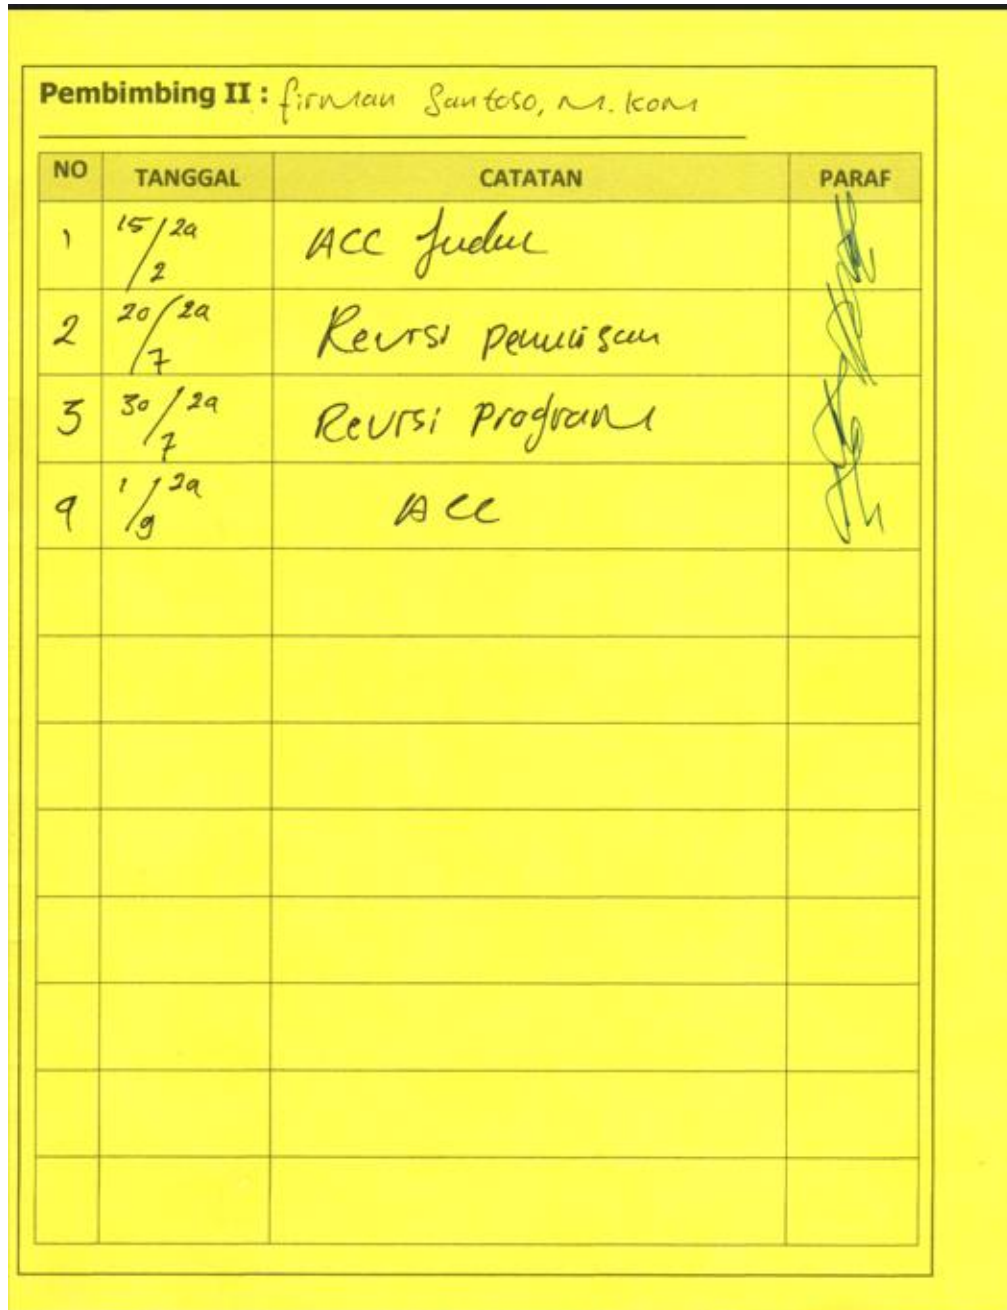 Pembimbing II : Firman Santoso, M. Kom
NO TANGGAL CATATAN PARAF
1 15/2 24 ACC Judul
2 20/7 24 Revisi penulisan
3 30/7 24 Revisi Program
4 1/9 24 ACC